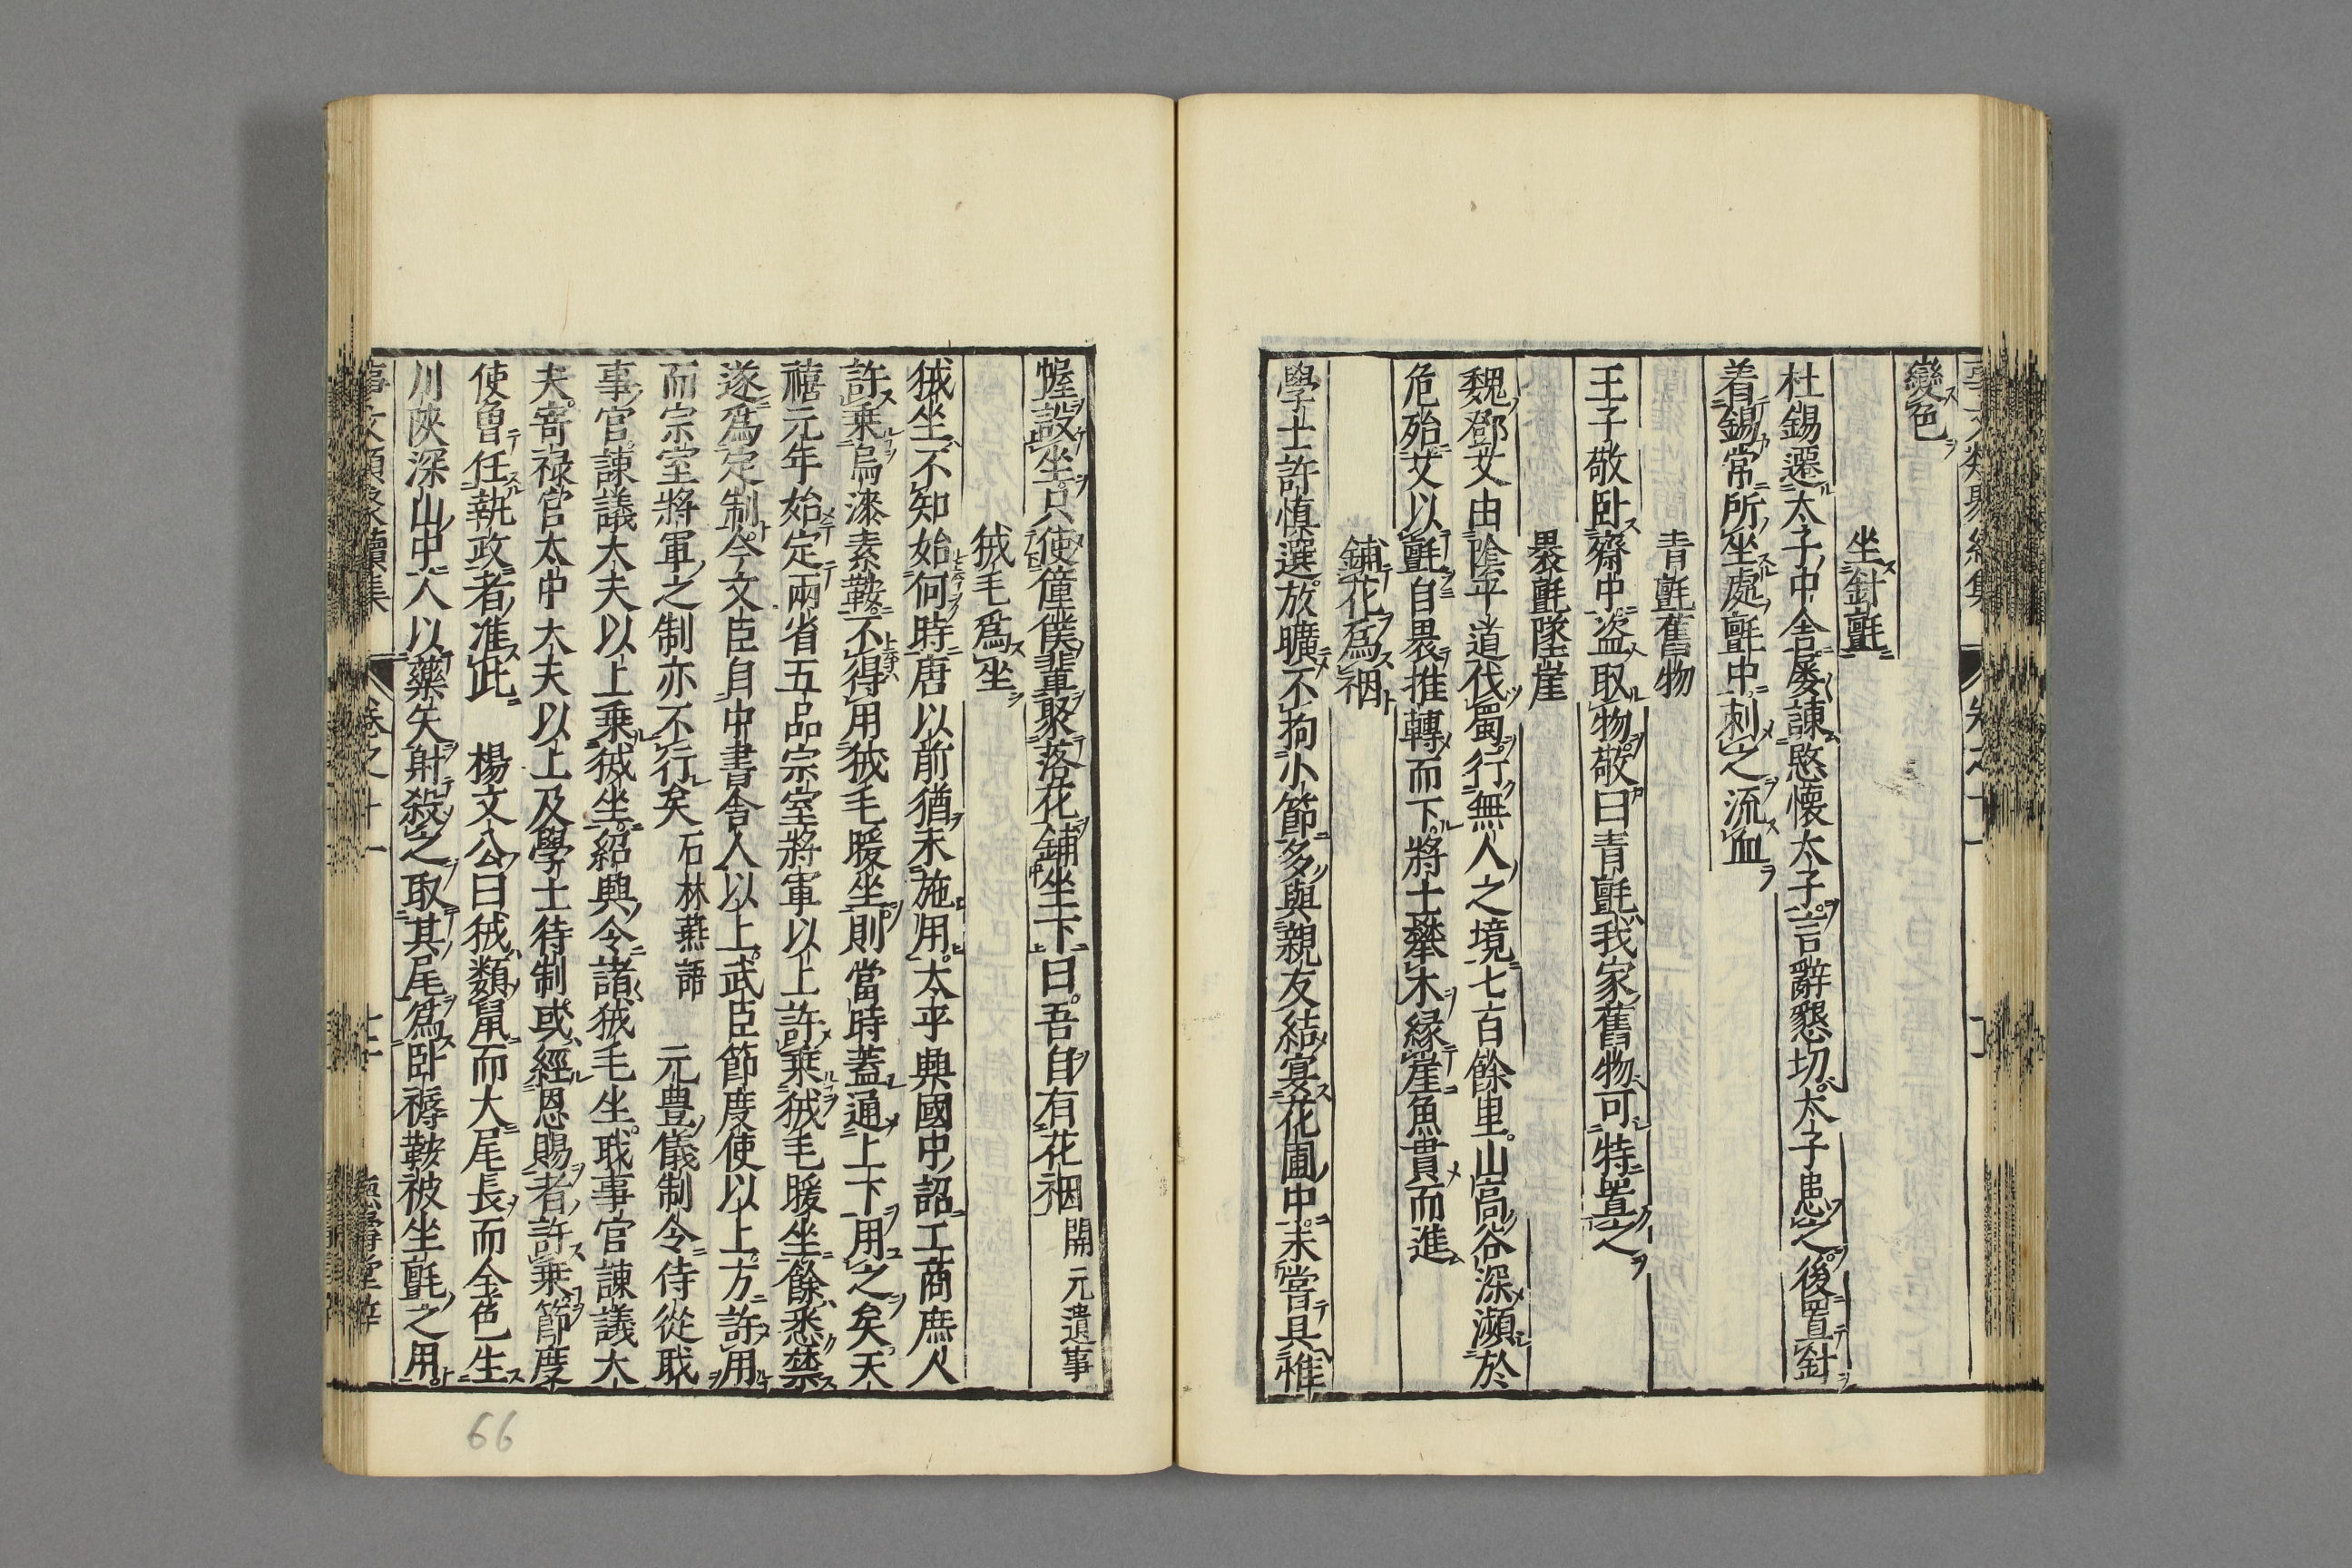 變色
坐針氈
杜錫遷太子中舍屡諫愍懷太子言辭懇切太子患之後置針
着錫常所坐處氈中刺之流血
青氈舊物
王子敬卧齋中盗取物敬曰青氈我家舊物可特置之
裹氈墜崖
魏鄧艾由陰平道伐蜀行無人之境七百餘里山高谷深瀕於
危殆艾以氈自裹推轉而下將士攀木縁崖魚貫而進
鋪花爲裀
學士許慎選放曠不拘小節多與親友結宴花圃中未嘗具帷
幄設坐只使僮僕輩聚落花鋪坐下曰吾自有花裀 開元遺事
狨毛爲坐
狨坐不知始何時唐以前猶未施用太平興國中詔工商庶人
許乗烏漆素鞍不得用狨毛暖坐則當時蓋通上下用之矣天
禧元年始定兩省五品宗室將軍以上許乗狨毛暖坐餘悉禁
遂爲定制今文臣自中書舎人以上武臣節度使以上方許用
而宗室將軍之制亦不行矣 石林燕語 元豊儀制令侍從職
事官諫議大夫以上乗狨坐紹興令諸狨毛坐職事官諫議大
夫寄禄官太中大夫以上及學士待制或經恩賜者許乗節度
使曽任執政者准此 楊文公曰狨類鼠而大尾長而金色生
川陝深山中人以藥矢射殺之取其尾爲卧褥鞍被坐氈之用
事文類聚續集 卷之十一